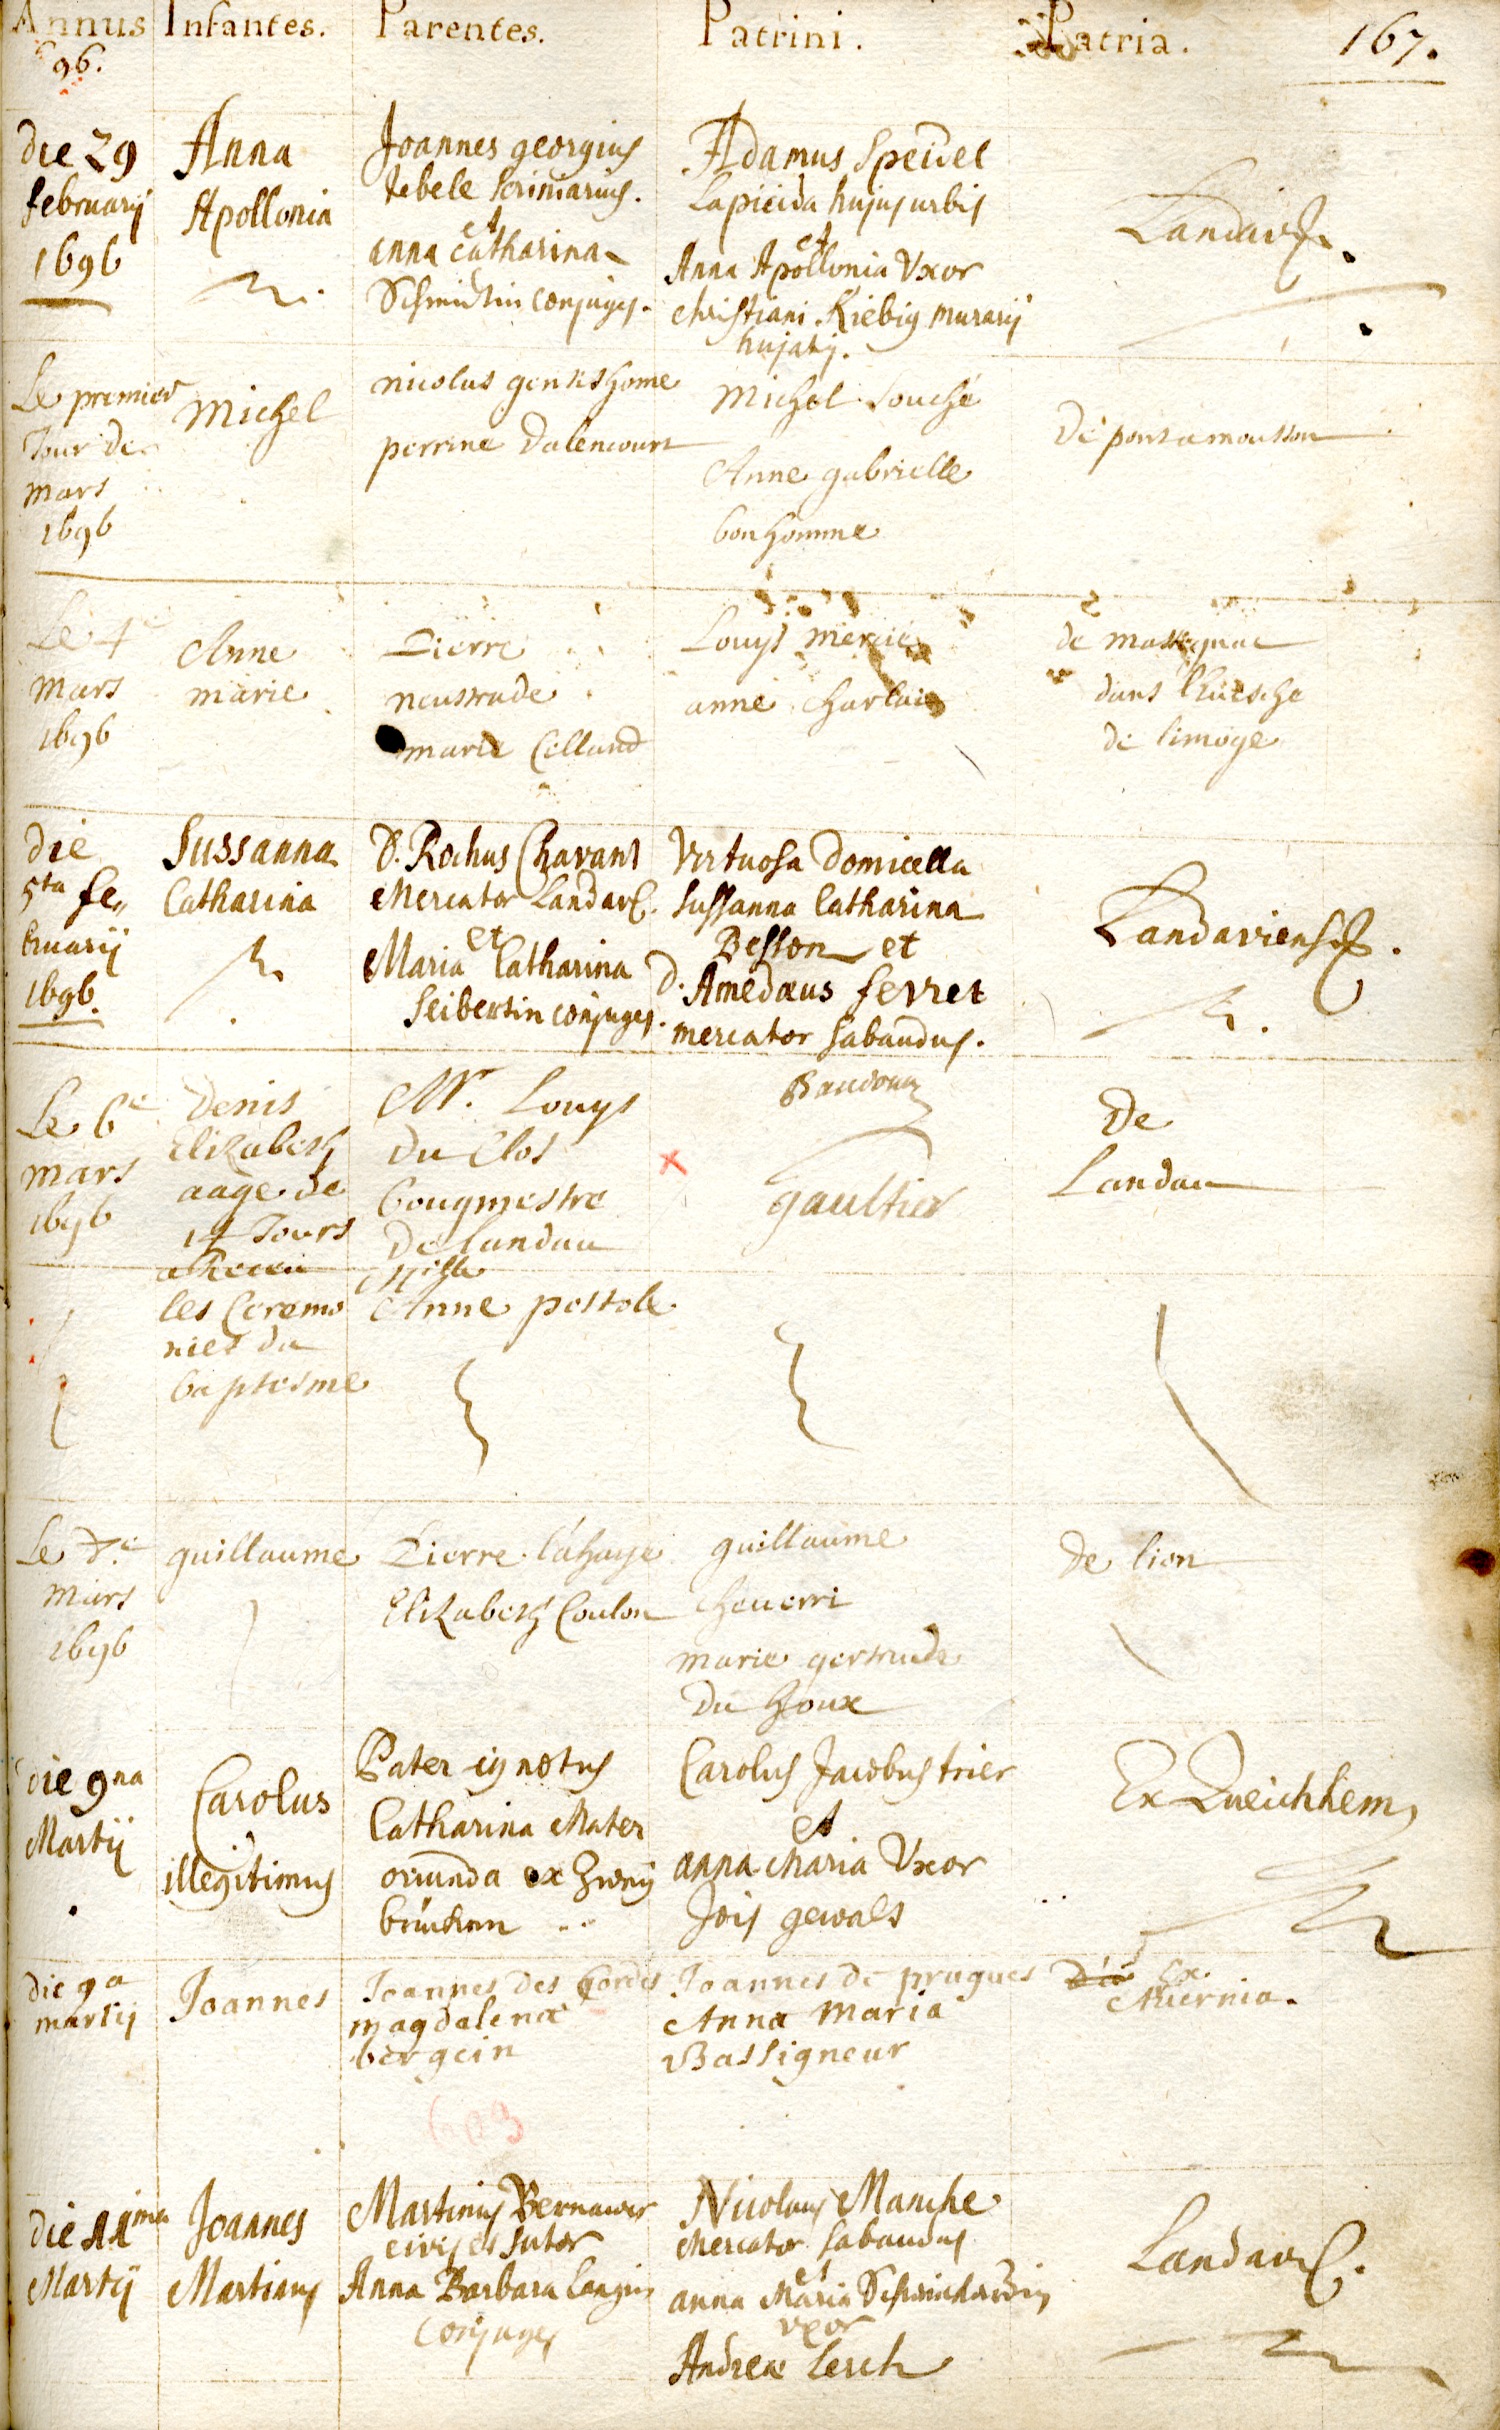 Annus Infantes. Parentes. Patrini. Patria. 167.
96.
die 29
februarij
1696
Anna
Apollonia
Joannes georgius
Jebele scriniarius.
et
anna catharina
Schmidtin conjuges.
Adamus Speidel
Lapicida hujus urbis
et
Anna Apollonia Uxor
christiani Kiebig murarij
hujatis.
Landavis.
Le premier
Jour de
mars
1696
Michel
nicolas gentishome
perrine dalencourt
Michel souché
Anne gabrielle
bonhomme
De pontamousson
Le 4e
mars
1696
Anne
marie
Pierre
neustrade
marie Celland
Louys mercie
anne charlai
de massignac
dans l'Euesche
de limoge
die
5ta fe„
bruarij
1696.
Sussanna
Catharina
D. Rochus Chavant
Mercator Landav.
et
Maria Catharina
Seibertin conjuges.
Virtuosa Domicella
Sussanna Catharina
Besson et
D. Amedæus ferret
mercator Sabaudus.
Landaviensis.
Le 6e
mars
1696
Denis
Elizabeth
aage de
14 Jours
a Receu
les Ceremo
nies du
baptesme
Mr. Louys
du Clos
bougmestre
De landau
Anne postole
Baudouin
gaultier
De
Landau
Le 7.e
mars
1696
guillaume
Pierre lahaye
Elizabeth Coulon
guillaume
cheuerri
marie gertrude
Du houx
de lion
die 9na
Martij
Carolus
illegitimus
Pater ignotus
Catharina Mater
oriunda ex Zwey
brücken
Carolus Jacobus trier
et
anna Maria Uxor
Jois gewals
Ex Queichhem
die 9a
martij
Joannes
Joannes des bordes
magdalena
bergein
Joannes de prugues
Anna Maria
Bassigneur
ex
Aluernia.
609
die 11ma
Martij
Joannes
Martinus
Martinus Bernauer
civis et sutor
Anna Barbara Langin
Conjuges
Nicolaus Manche
Mercator Sabaudus
et
anna Maria Schweickardin
uxor
Andreæ Lerch
Landavis.